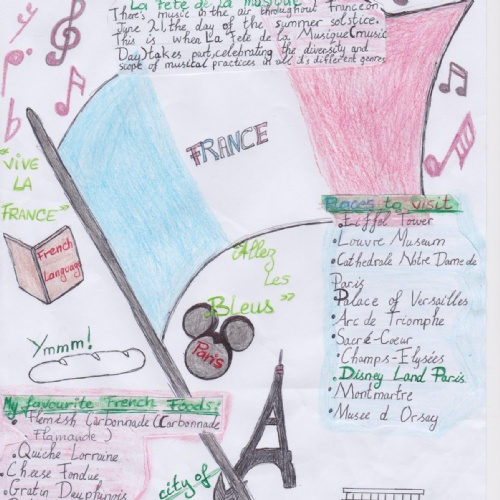 La Fête de la musique
There's music in the air throughout France on
June 21, the day of the summer solstice.
This is when La Fete de la Musique (music
Day) takes part, celebrating the diversity and
scope of musical practices in all it's different genres
FRANCE
"VIVE
LA
FRANCE"
French
Language
Places to visit
Eiffol Tower
Louvre Museum
Cathedrale Notre Dame de
Paris
Palace of Versailles
Arc de Triomphe
Sacré-Coeur
Champs-Elysées
Disney Land Paris
Montmartre
Musee d Orsay
"Allez
Les
Bleus"
Paris
Ymmm!
My favourite French Foods:
Flemish Carbonnade (Carbonnade
Flamande)
Quiche Lorraine
Cheese Fondue
Gratin Dauphinois
city of